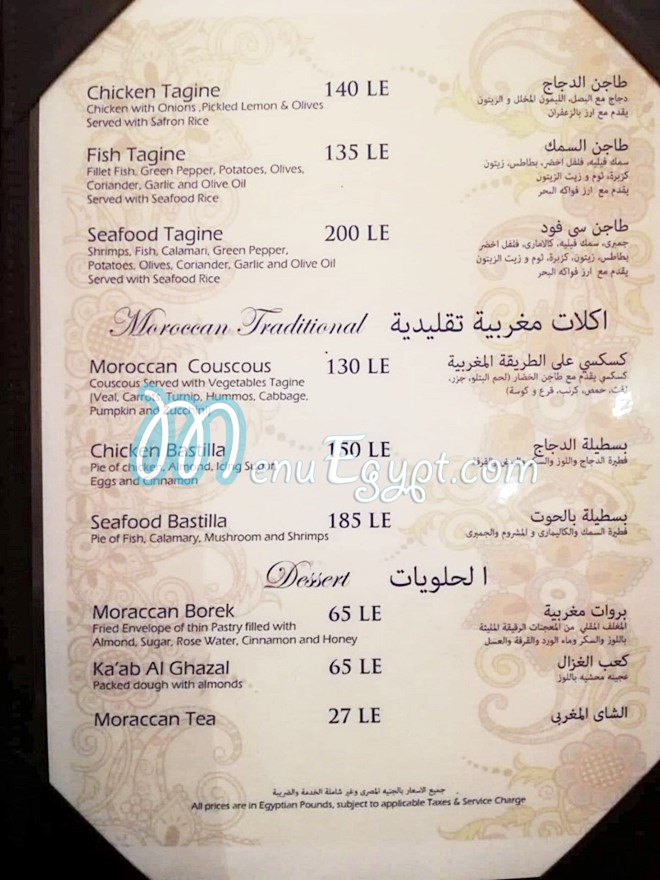 Chicken Tagine 140 LE طاجن الدجاج
Chicken with Onions ,Pickled Lemon & Olives دجاج مع البصل، الليمون المخلل و الزيتون
Served with Safron Rice يقدم مع ارز بالزعفران
Fish Tagine 135 LE طاجن السمك
Fillet Fish, Green Pepper, Potatoes, Olives, سمك فيليه، فلفل اخضر، بطاطس، زيتون
Coriander, Garlic and Olive Oil كزبرة، ثوم و زيت الزيتون
Served with Seafood Rice يقدم مع ارز فواكه البحر
Seafood Tagine 200 LE طاجن سي فود
Shrimps, Fish, Calamari, Green Pepper, جمبرى، سمك فيليه، كالامارى، فلفل اخضر
Potatoes, Olives, Coriander, Garlic and Olive Oil بطاطس، زيتون، كزبرة، ثوم و زيت الزيتون
Served with Seafood Rice يقدم مع ارز فواكه البحر
Moroccan Traditional اكلات مغربية تقليدية
Moroccan Couscous 130 LE كسكسي على الطريقة المغربية
Couscous Served with Vegetables Tagine كسكسي يقدم مع طاجن الخضار (لحم البتلو، جزر،
(Veal, Carrot, Turnip, Hummos, Cabbage, لفت، حمص، كرنب، قرع و كوسة)
Pumpkin and Zucchini)
Chicken Bastilla 150 LE بسطيلة الدجاج
Pie of chicken, Almond, Icing Sugar, فطيرة الدجاج واللوز والسكر والبيض والقرفة
Eggs and Cinnamon
MenuEgypt.com
Seafood Bastilla 185 LE بسطيلة بالحوت
Pie of Fish, Calamary, Mushroom and Shrimps فطيرة السمك والكاليمارى و المشروم والجمبرى
Dessert الحلويات
Moraccan Borek 65 LE بروات مغربية
Fried Envelope of thin Pastry filled with المغلف المقلي من المعجنات الرقيقة المليئة
Almond, Sugar, Rose Water, Cinnamon and Honey باللوز والسكر وماء الورد والقرفة والعسل
Ka'ab Al Ghazal 65 LE كعب الغزال
Packed dough with almonds عجينه محشيه باللوز
Moraccan Tea 27 LE الشاى المغربى
جميع الاسعار بالجنيه المصرى وغير شاملة الخدمة والضريبة
All prices are in Egyptian Pounds, subject to applicable Taxes & Service Charge